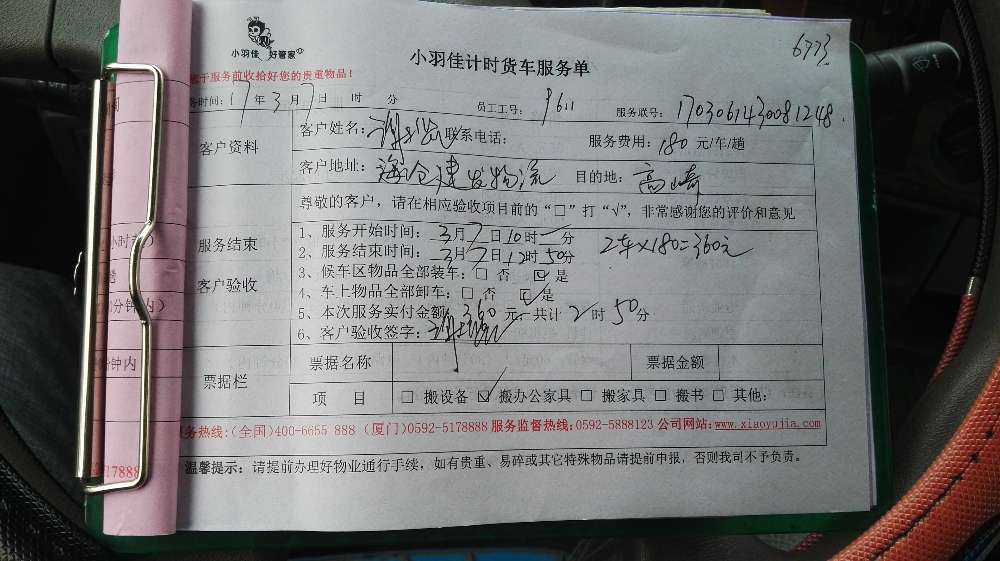 小羽佳 好管家
小羽佳计时货车服务单
6773
于服务前收拾好您的贵重物品！
务时间：17年3月7日 时 分 员工工号：9611 服务联号：1703061430081248
客户资料
客户姓名： 联系电话： 服务费用：180元/车/趟
客户地址：海仓建发物流 目的地：高崎
尊敬的客户，请在相应验收项目前的“□”打“√”，非常感谢您的评价和意见
服务结束
客户验收
1、服务开始时间：3月7日10时一分 2车×180=360元
2、服务结束时间：3月7日12时50分
3、候车区物品全部装车：□ 否 ☑ 是
4、车上物品全部卸车：□ 否 ☑ 是
5、本次服务实付金额：360元，共计2时50分
6、客户验收签字：
票据栏
票据名称 票据金额
项 目 □ 搬设备 ☑ 搬办公家具 □ 搬家具 □ 搬书 □ 其他：
务热线：(全国)400-6655 888 (厦门)0592-5178888 服务监督热线：0592-5888123 公司网站：www.xiaoyujia.com
温馨提示：请提前办理好物业通行手续，如有贵重、易碎或其它特殊物品请提前申报，否则我司不予负责。
小时
分钟内)
钟内
178888